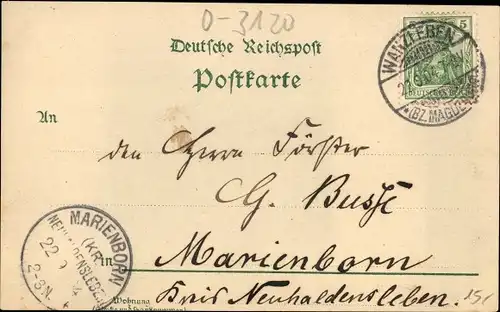 O-3120
Deutsche Reichspost
Postkarte
5
WANZLEBEN
*(BZ.MAGDEBURG)
An
den Herrn Förster
G. Busse
in Marienborn
Kreis Neuhaldensleben.
Wohnung
MARIENBORN
(KR.
NEUHALDENSLEBEN)
22 9
2-3N.
15,-